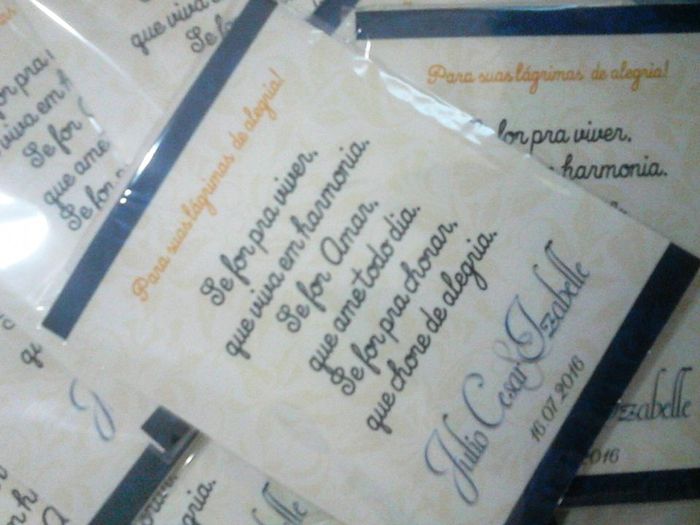 Para suas lágrimas de alegria!
Se for pra viver,
que viva em harmonia.
Se for Amar,
que ame todo dia.
Se for pra chorar,
que chore de alegria.
Julio Cesar & Izabelle
16.07.2016
Para suas lágrimas de alegria!
for pra viver,
harmonia.
zabelle
016
que viva
Se fo
or pra
viva em
Se for
que ame
Se for
gria.